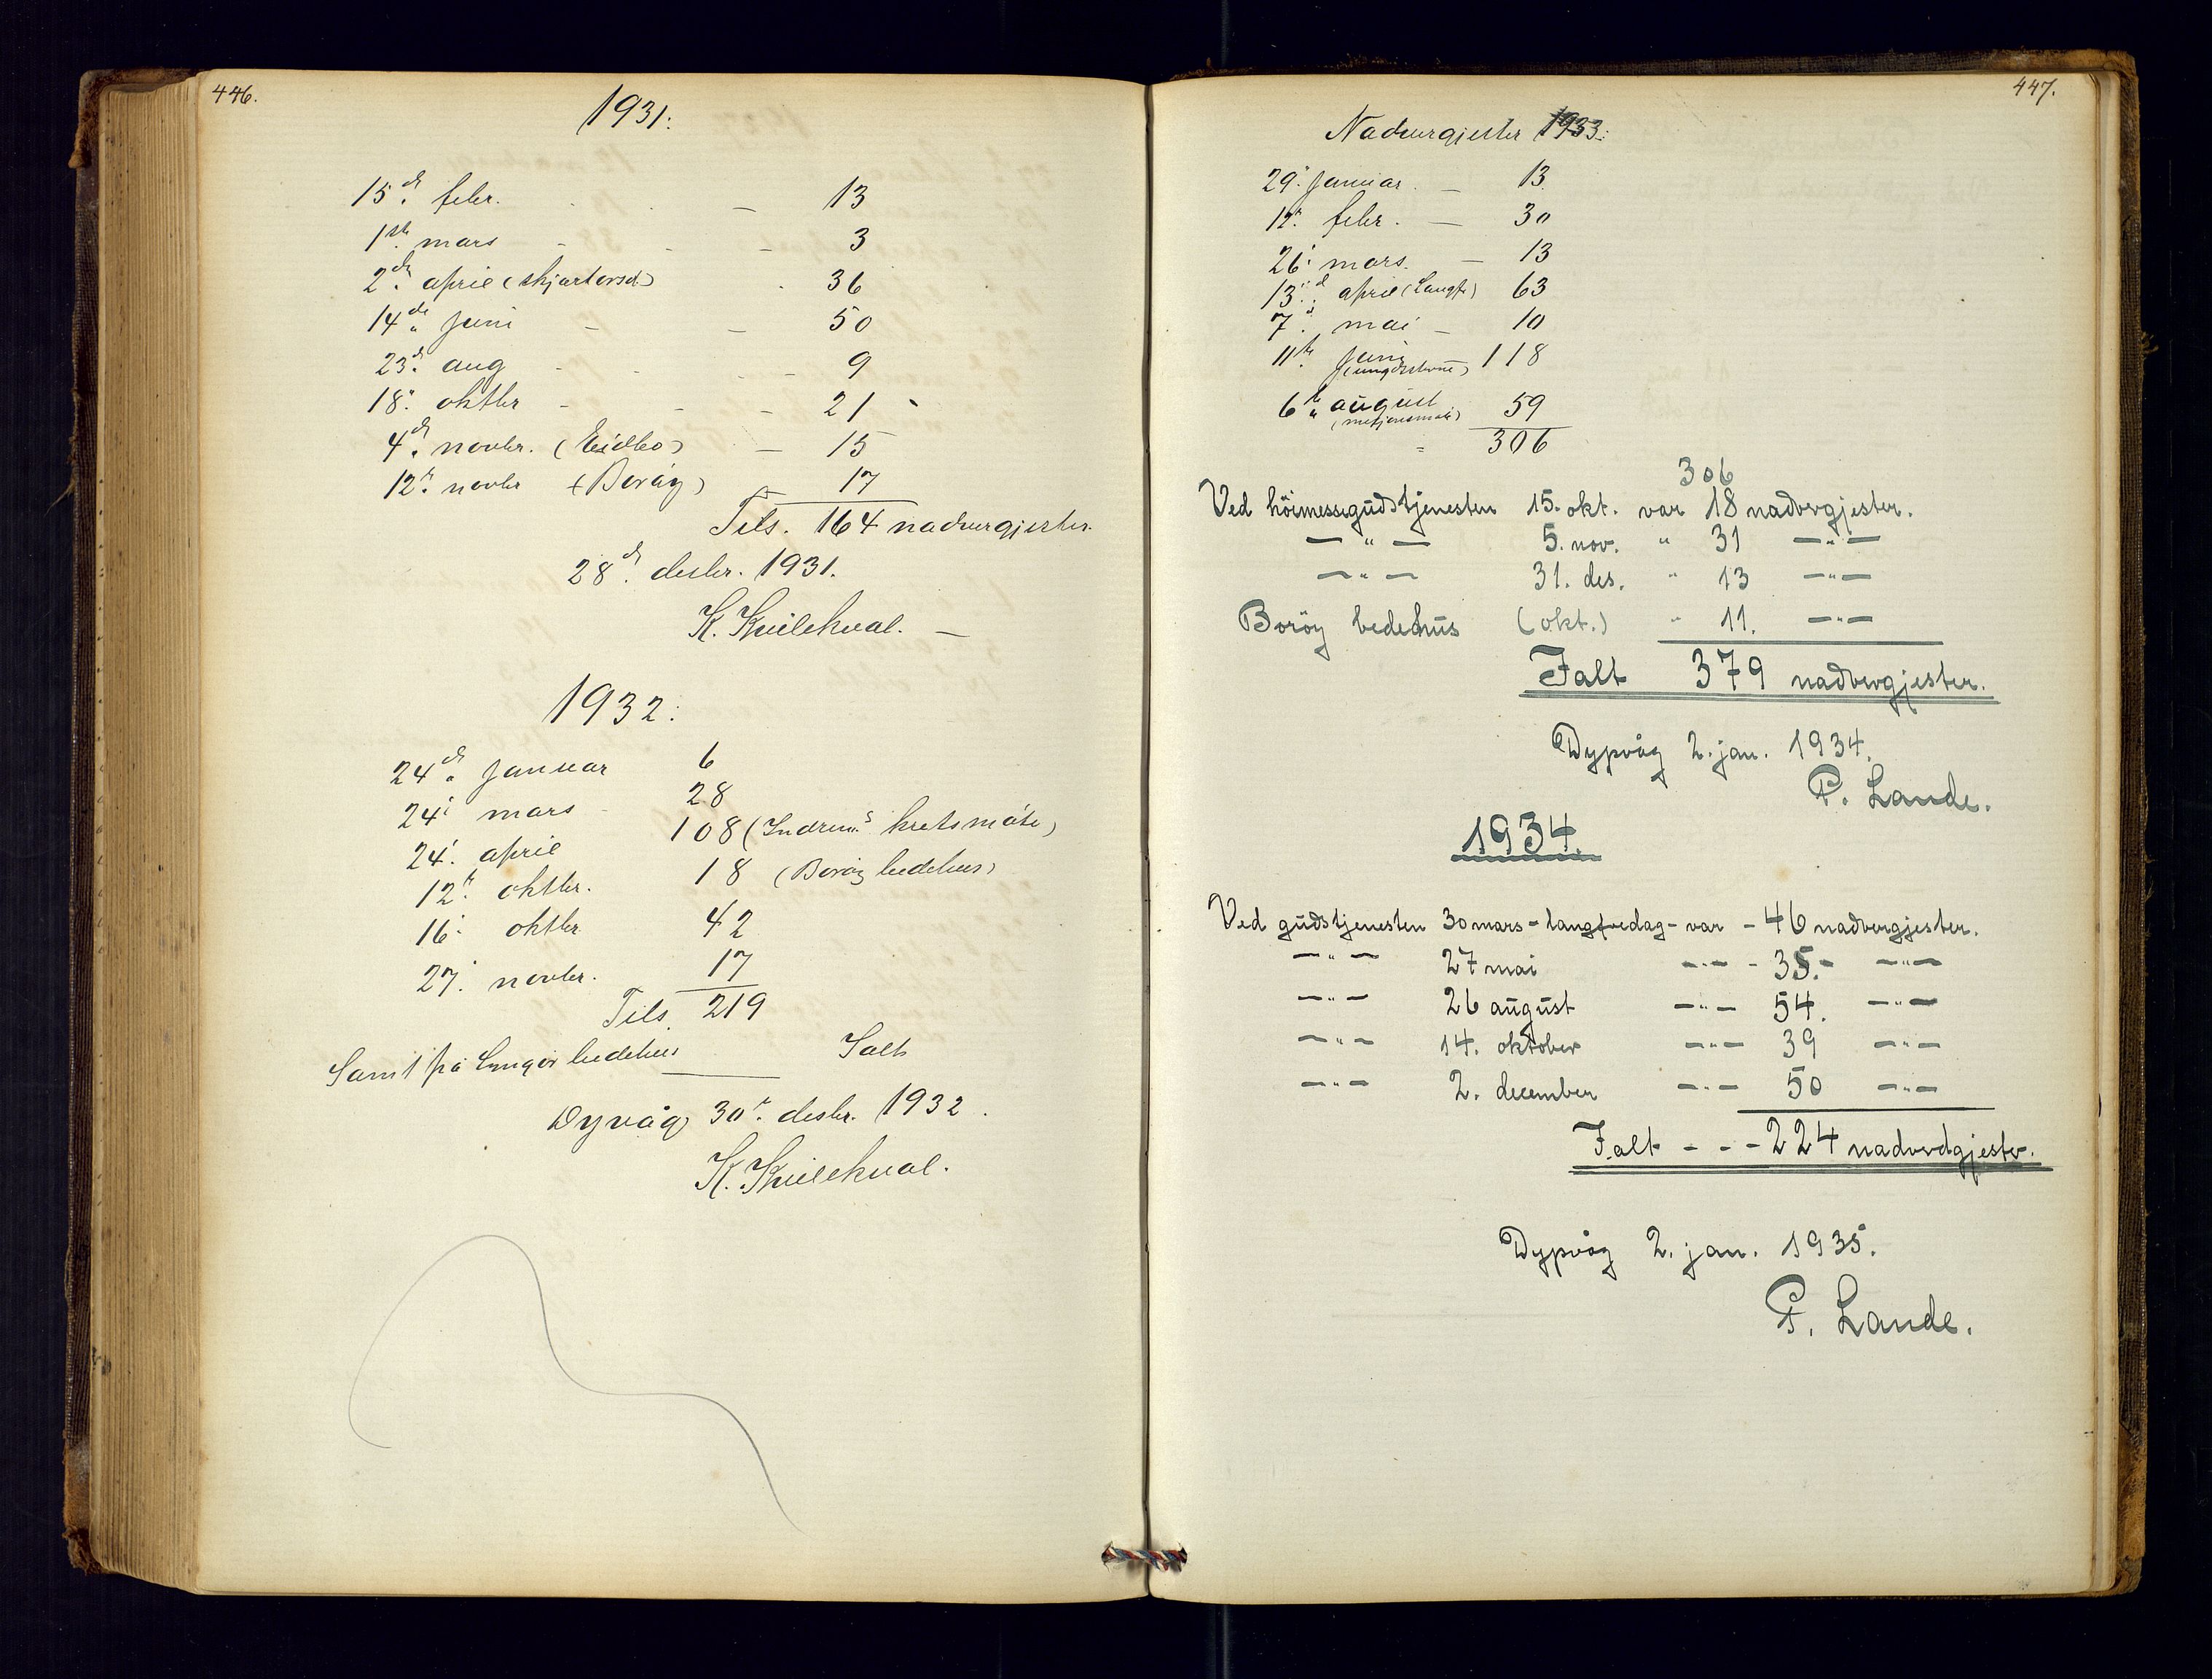 446.
1931:
15de febr. - 13
1ste mars - - - 3
2den april (skjærtorsd) 36
14de juni - - 50
23de aug - - - 9
18: oktbr - - - 21
4de novbr. (Eidbo) - 15
12te novbr (Borøy) 17
Tils. 164 nadvergjester.
28de desbr. 1931.
K. Kvilekval. -
1932:
24de januar 6
24: mars - 28
24: april 108 (Indrem.s kretsmøte)
12te oktbr. 18 (Borøy bedehus)
16: oktbr 42
27: novbr. 17
Tils. 219
Samt på Lyngør bedehus Ialt
Dyvåg 30te desbr. 1932.
K. Kvilekval.
447.
Nadvergjester 1933:
29: januar. - 13
12: febr. - 30
26: mars. - 13
13: april (Langfr) 63
7: mai - 10
11te juni 118
(ungdsstevne)
6te august 59
306
306
Ved höimessegudstjenesten 15. okt. var 18 nadvergjester.
— " — 5. nov. " 31 — " —
— " — 31. des. " 13 — " —
Boröy bedehus (okt.) " 11. — " —
Ialt 379 nadvergjester.
Dypvåg 2. jan. 1934.
P. Lande.
1934.
Ved gudstjenesten 30 mars - langfredag - var - 46 nadvergjester.
— " — 27 mai — " — - 35. - — " —
— " — 26 august — " — 54. — " —
— " — 14. oktober — " — 39 — " —
— " — 2. december — " — 50 — " —
Ialt - - - 224 nadverdgjester.
Dypvåg 2. jan. 1935.
P. Lande.